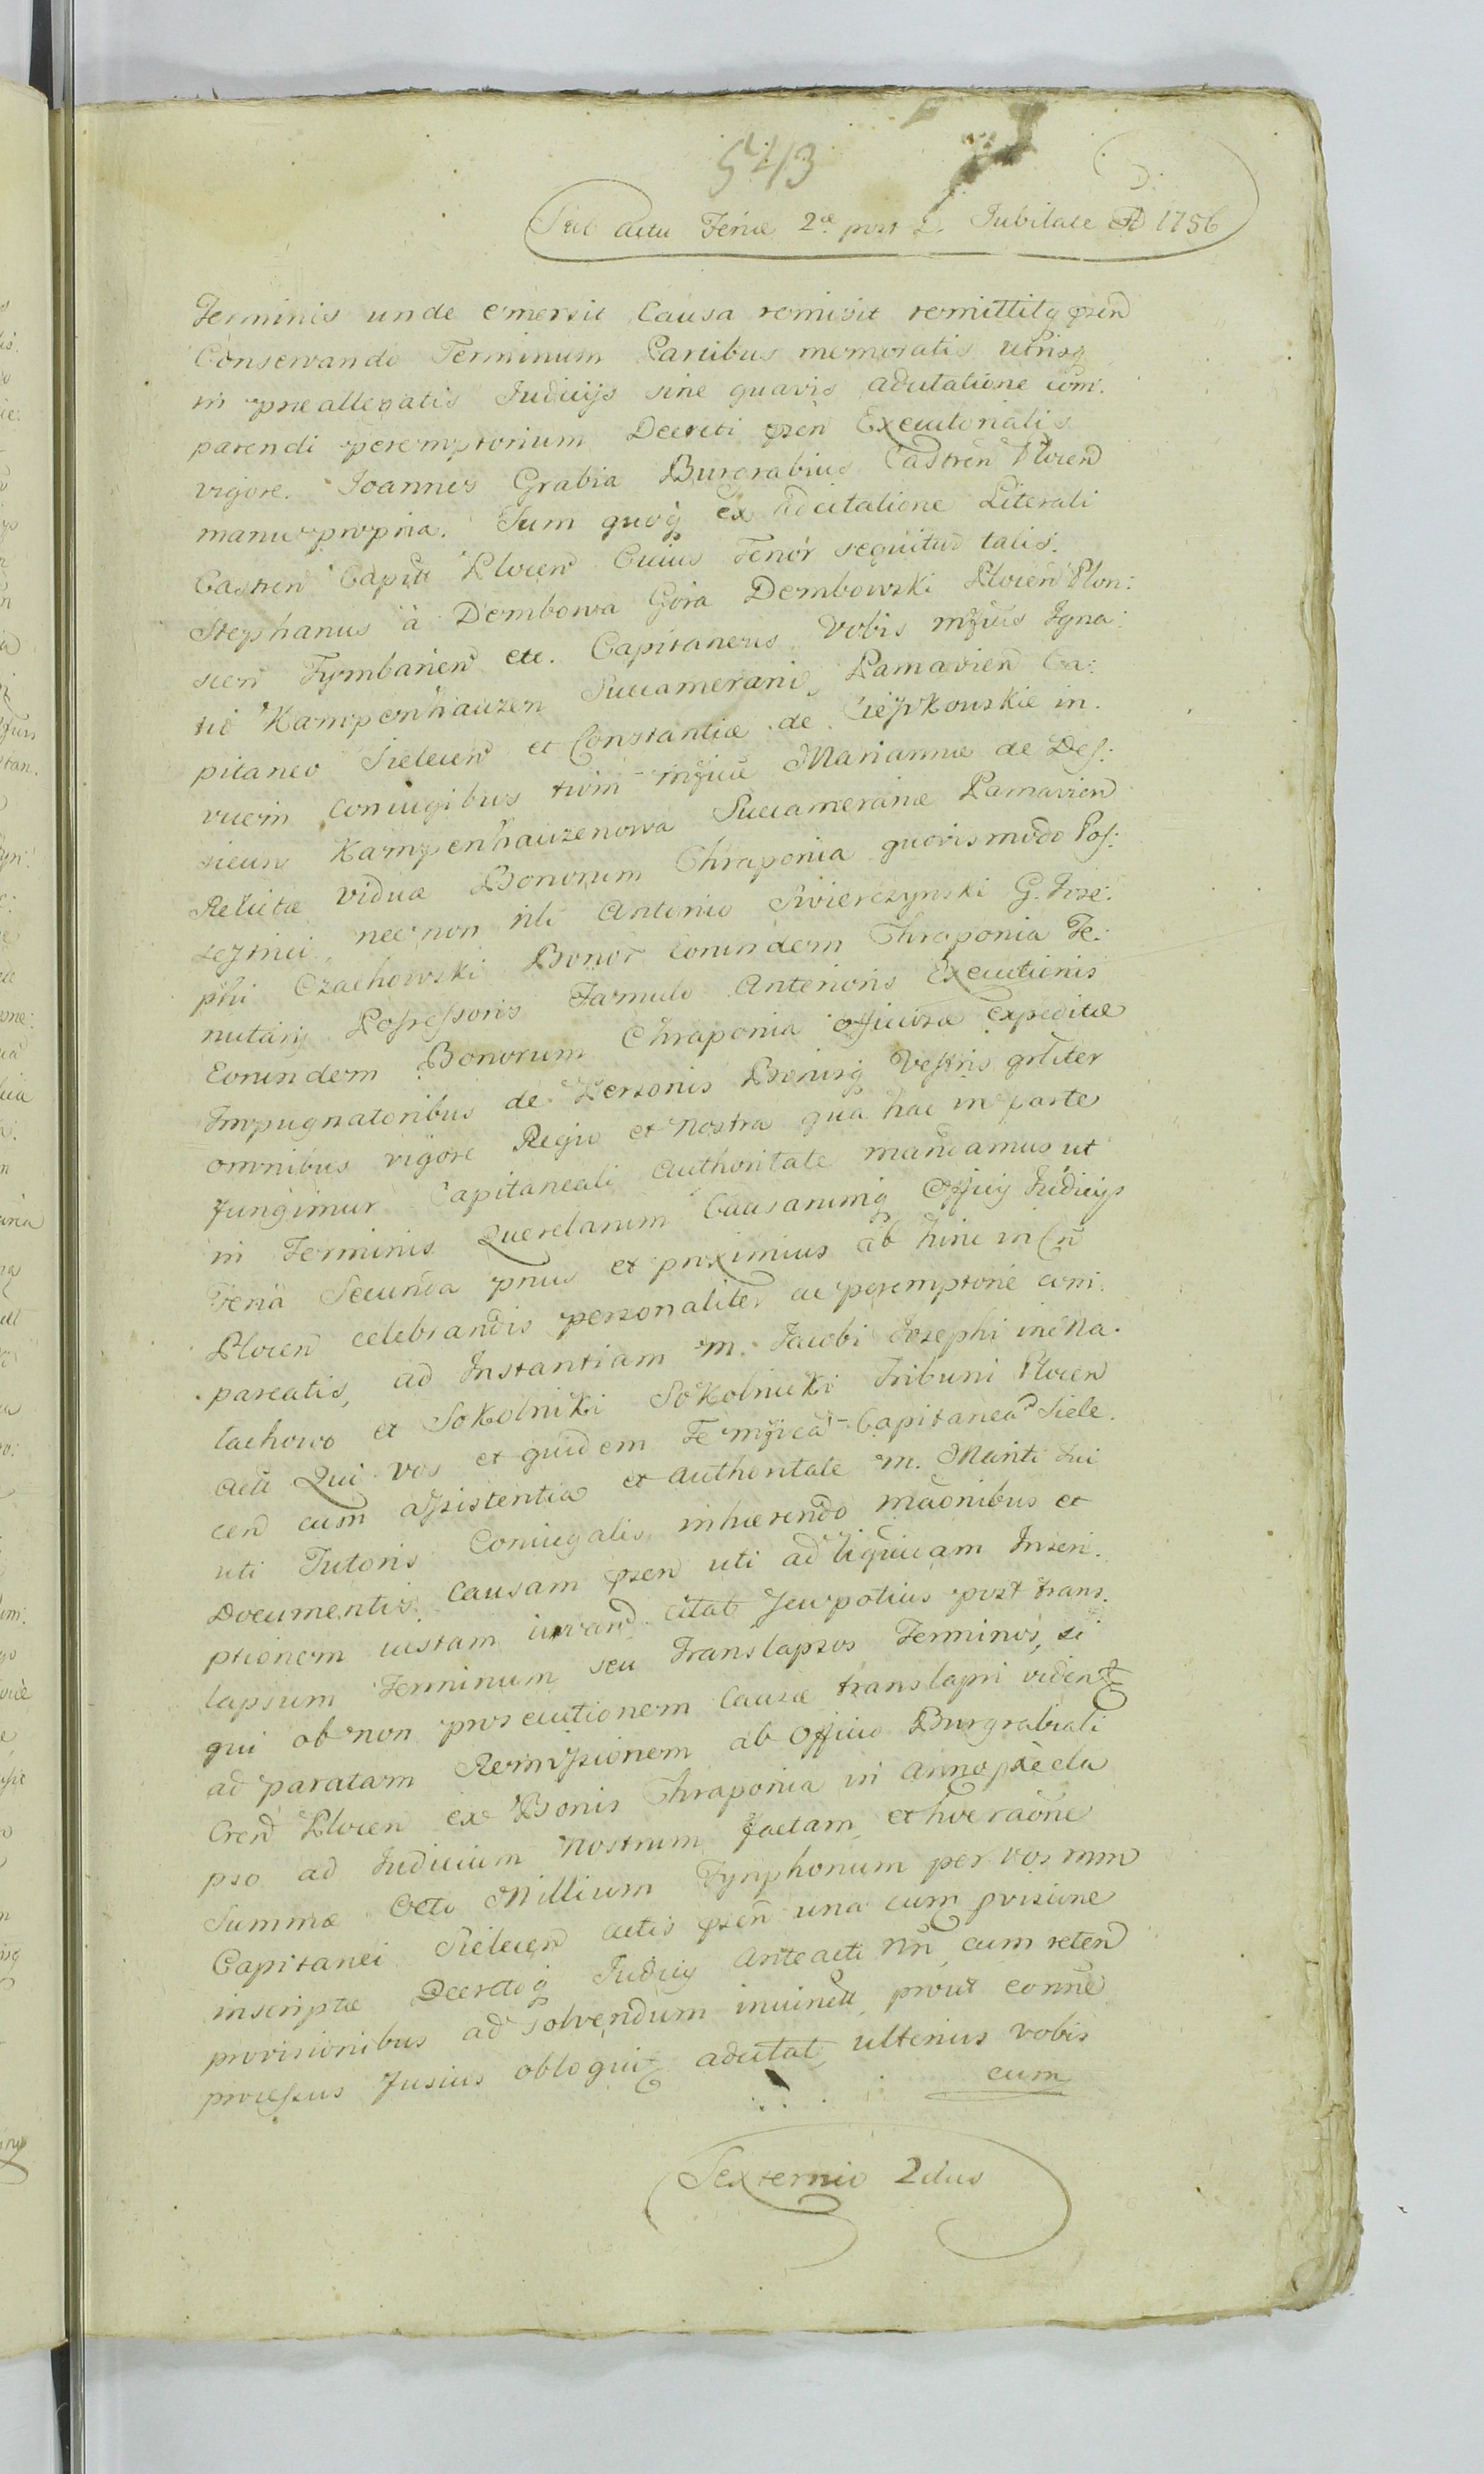 543
Sub actu Feriæ 2æ post D. Jubilate AD 1756
Terminis unde emersit Causa remisit remittitq pzen
Conservando Terminum Partibus memoratis utrisq
in præallegatis Judicijs sine quavis adcitatione com:
parendi peremptorium Decreti pzen Executorialis
vigore. Joannes Grabia Burgrabius Castren Plocen
manu propria. Tum quoq ex adcitatione Literali
Castren Capti Plocen Cuius Tenor sequitur talis.
Stephanus à Dembowa Góra Dembowski Plocen Plon:
scen Tymbarien etc. Capitaneus Vobis mfficis Igna:
tio Kampenhauzen Succamerario Parnavien Ca:
pitaneo Sielecen et Constantiæ de Cieszkowskie in.
vicem coniugibus tum mfficæ Mariannæ de Des:
sieur Kampenhauzenowa Succameraria Parnavien
Relictæ Viduæ Bonorum Chraponia quovis modo Pos:
sessrici, nec non nli Antonio Swierczynski G. Joze:
phi Czachowski Bonor Eorundem Chraponia Te:
nutarij Possessoris Famulo Anterioris Executionis
Eorundem Bonorum Chraponia officiosæ Expeditæ
Impugnatoribus de Personis Bonisq Vestris grliter
omnibus vigore Regia et Nostra qua hac in parte
fungimur Capitaneali Authoritate mandamus ut
in Terminis Querelarum Causarumq Officij Judicijs
Feria Secunda prius et proximius ab hinc in Cn
Plocen celebrandis personaliter ac peremptorie com:
pareatis, ad Instantiam m. Jacobi Josephi in Na.
tachowo et Sokolniki Sokolnicki Tribuni Plocen
Acti Qui Vos et quidem Te mfficã Capitanea Siele.
cen cum assistentia et Authoritate m. Mariti tui
uti Tutoris Coniugalis inhærendo mãonibus et
Documentis causam pzen uti ad liquidam Inscri.
ptionem iustam iuvand citat seu potius post trans.
lapsum Terminum seu translapsos Terminos, si
qui ob non prosecutionem Causæ translapsi vident
ad paratam Remissionem ab Officio Burgrabiali
Cren Plocen ex Bonis Chraponia in Anno præ ela
pso ad Judicium Nostrum factam et
Summæ Octo Millium Tynphonum per Vos mm
Capitanei Sielecen actis pzen una cum provisione
inscriptæ Decretoq Judicij Anteacti nri cum reten
provisionibus ad solvendum provt
processus fusius obloquit adcitat ulterius Vobis
cum
Sexternio 2dus